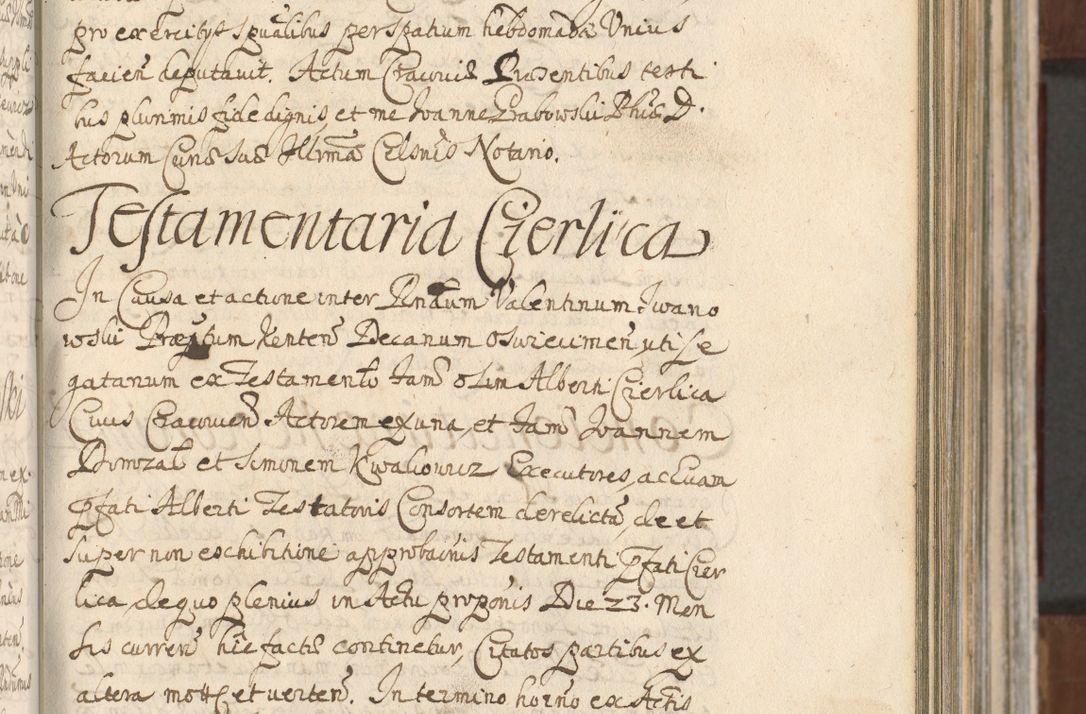 pro exercitijs spũalibus per spatium hebdomadæ Unius
facien̄ deputavit. Actum Cracoviæ Præsentibus testi
bus plurimis fide dignis, et me Joanne Grabowski Phiæ D.
Actorum Curiæ Suæ Illrmæ Celsnis Notario.
Testamentaria Cierlica
In Causa et actione inter Rndum Valentinum Iwano
wski Præptum Kenten̄ Decanum Osviecimen̄, uti Le
gatarium ex Testamento fam̄ olim Alberti Cierlica
Civis Cracovien̄ Actorem ex una, et fam̄ Joannem
Domozał et Simonem Kwaśiowicz Executores, ac Evam
pfati Alberti Testatoris Consortem derelictã, de et
super non exhibitione approbaõnis Testamenti pfati Cier
lica, de quo plenius in Actu propõnis Die 23. Men
sis curren̄ hĩc factæ continetur, Citatos partibus ex
altera motts et verten̄. In termino horño ex Actis